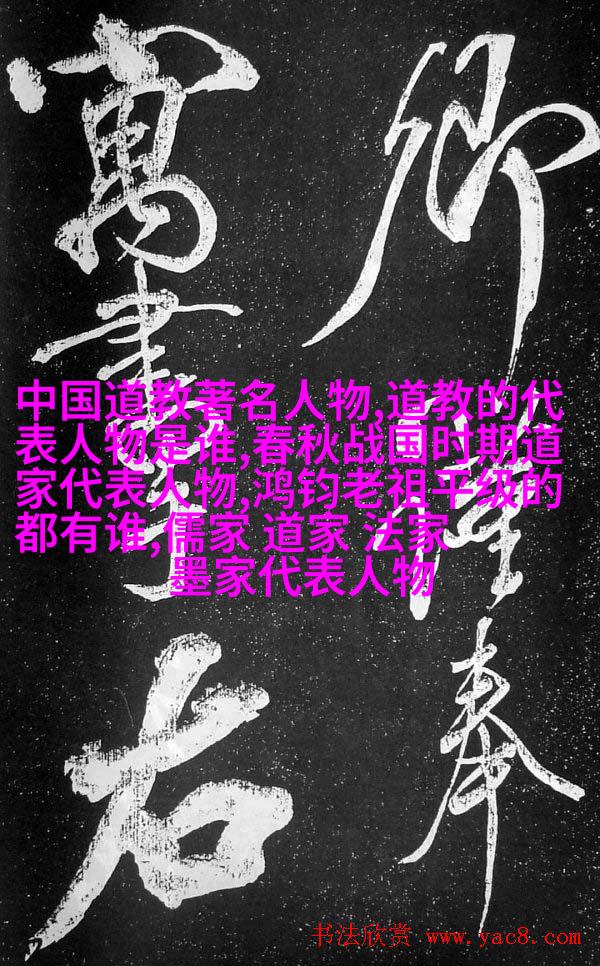 卿 奉
書 右
中国道教著名人物,道教的代
表人物是谁,春秋战国时期道
家代表人物,鸿钧老祖平级的
都有谁,儒家 道家 法家
墨家代表人物
书法欣赏 www.yac8.com